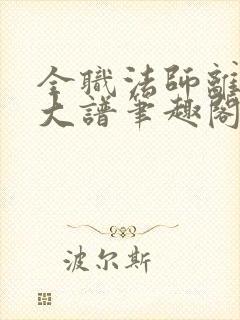 全職法師離
大譜筆趣閣
波尔斯